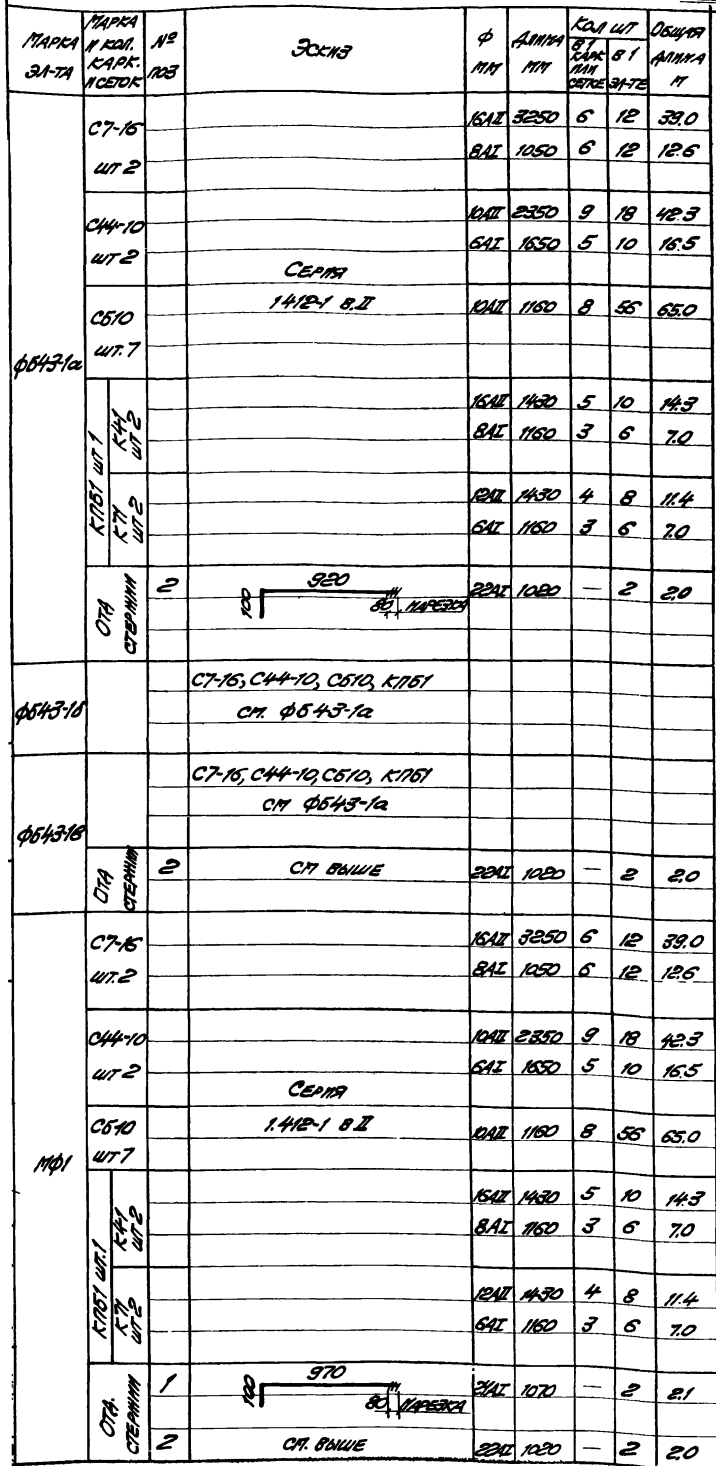 МАРКА ЭЛ-ТА
МАРКА И КОЛ. КАРК. И СЕТОК
№ ПОЗ
ЭСКИЗ
Ф ММ
ДЛИНА ММ
КОЛ ШТ
В 1 КАРК ИЛИ СЕТКЕ
В 1 ЭЛ-ТЕ
ОБЩАЯ ДЛИНА М
ФБ43-1а
С7-16 ШТ 2
16АII 3250 6 12 39.0
8АI 1050 6 12 12.6
С44-10 ШТ 2
10АII 2350 9 18 42.3
6АI 1650 5 10 16.5
СЕРИЯ
1412-1 В.II
СБ10 ШТ. 7
10АII 1160 8 56 65.0
КПБ1 ШТ 1
К41 ШТ 2
16АII 1430 5 10 14.3
8АI 1160 3 6 7.0
К71 ШТ 2
12АII 1430 4 8 11.4
6АI 1160 3 6 7.0
ОТД СТЕРЖНИ
2
100 920 80 НАРЕЗКА
22АI 1020 — 2 2.0
ФБ43-1б
С7-16, С44-10, СБ10, КПБ1
СМ. ФБ43-1а
ФБ43-1в
С7-16, С44-10, СБ10, КПБ1
СМ ФБ43-1а
ОТД СТЕРЖНИ
2 СМ ВЫШЕ 22АI 1020 — 2 2.0
МФ1
С7-16 ШТ. 2
16АII 3250 6 12 39.0
8АI 1050 6 12 12.6
С44-10 ШТ 2
10АII 2350 9 18 42.3
6АI 1650 5 10 16.5
СЕРИЯ
1.412-1 В II
СБ10 ШТ 7
10АII 1160 8 56 65.0
КПБ1 ШТ.1
К41 ШТ 2
16АII 1430 5 10 14.3
8АI 1160 3 6 7.0
К71 ШТ 2
12АII 1430 4 8 11.4
6АI 1160 3 6 7.0
ОТД. СТЕРЖНИ
1
100 970 80 НАРЕЗКА
1070 — 2 2.1
2 СМ. ВЫШЕ 22АI 1020 — 2 2.0